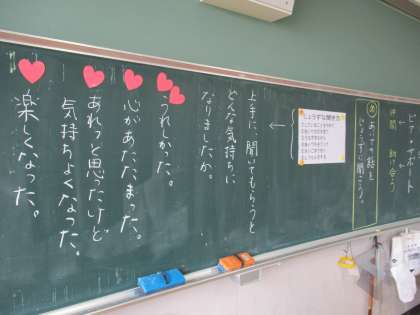 ピア・サポート
仲間 助け合う
め
あいての話を
じょうずに聞こう。
じょうずな聞き方
上手に、聞いてもらうと
どんな気持ちに
なりましたか。
うれしかった。
心があたたまった。
あれっと思ったけど
気持ちよくなった。
楽しくなった。